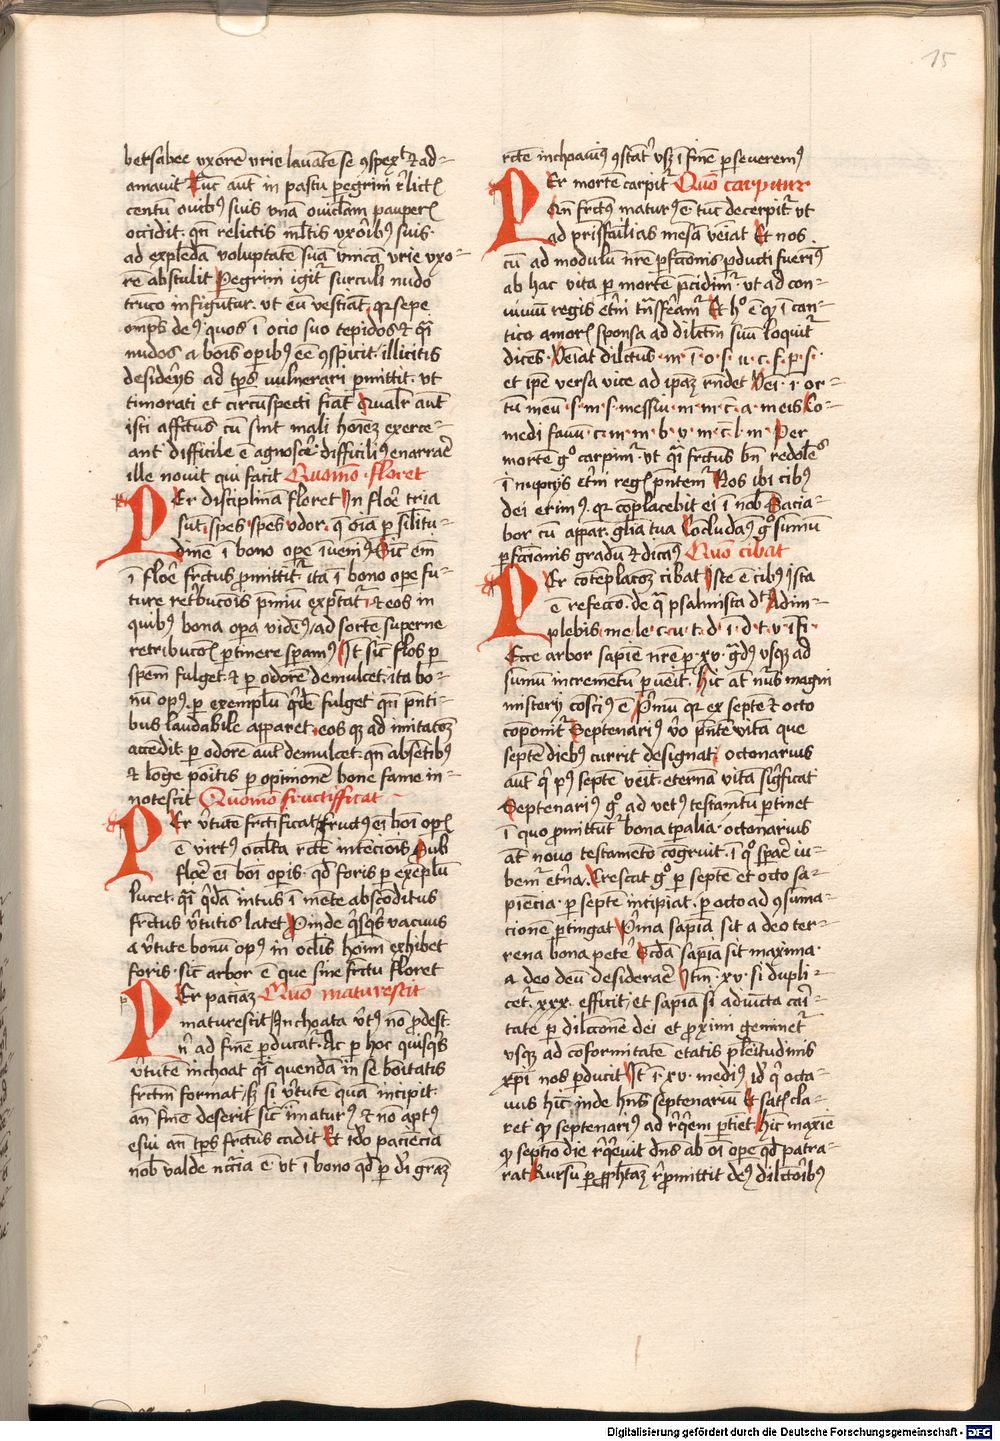 15
betsabee vxorē vrie lauātē se ꝯspexᵗ ⁊ ad-
amauit Tūc aūt in pastū peregrini r̄lictꝭ
centū ouibꝯ suis vnā ouiclam pauperꝭ
occidit · qn̄ relictis ml̄tis vxoribꝯ suis ·
ad explēdā voluptatē suā vnicā vrie vxo-
rē abstulit Pegrini igit̄ surculi nudo
trūco infigūtur · vt eū vestiāt · qꝛ sepe
omp̄s deꝯ quos ī ocio suo tepidos ⁊ qͣī
nudos a bonis opibꝯ eē ꝯspicit · illicitis
desiderijs ad tp̄s vulnerari pmittit · vt
timorati et circūspecti fiāt Qualr̄ aūt
isti affectus cū sint mali hoīez exerce-
ant difficile ē agnosceͬ difficiliꝯ enarrare
ille nouit qui facit Quomō · floret
Per disciplinā floret In floͤ tria
sūt · spēs · spes ⁊ odor · q̄ oīa p silitu-
dinē ī bono ope īueniꝯ Sic eīm
ī flore fructus ꝓmittit̄ ita ī bono ope fu-
ture ret̄bucōis p̄miū expctat̄ · ⁊ eos in
quibꝯ bona opa videmꝯ / ad sorte superne
retribucōis ptinere speramꝯ It̄ sic flos p
spēm fulget · ⁊ p odorē demulcet · ita bo-
nū opꝯ · p exemplū qͥdē fulget qn̄ p̄nti-
bus laudabile apparet · eos qꝫ ad imitacōz
accēdit · p odorē aūt demulcet · qn̄ absētibꝯ
⁊ lōge positis p opinionē bone fame in-
notescit Quomō fructificat
Per v̄tutē frctificat / fructꝯ em̄ boī opꝭ
ē virtꝯ occl̄ta rcte intēcionis Sub
floͤ em̄ boī operis · qd̄ foris p exēplū
lucet · qͣī qͥdā intus ī mēte abscōditus
fructus v̄tutis latet Proinde qͥsqͥs vacuus
a v̄tute bonū opꝯ in oclis hoīm exhibet
foris · sic arbor ē que sine frctu floret
Per paciāz Quō maturescit
maturescit / Inchoata v̄tꝯ nō ꝓdest ·
nͥ ad finē pducat̄ · Ac p hoc quisqͥs
v̄tutē inchoat qͣī quendā in se bonitatis
frctm̄ format / sꝫ si v̄tutē quā incipit ·
an̄ finē deserit sic īmaturꝯ ⁊ nō aptꝯ
esui an̄ tp̄s frctus cadit Et ideo paciēcia
nob̄ valde nc̄c̄ia ē · vt ī bono qd̄ p dī graz
rcte inchoauimꝯ ꝯstāt̄ vsqꝫ ī finē pseueremꝯ
Per mortē carpit̄ Quō carpitur
Qn̄ frctꝯ maturꝯ ē tūc decerpit̄ vt
ad pr̄isfāilias mēsā veniat Et nos ·
cū ad modulū nr̄e pfectionis pducti fuerimꝯ
ab hac vita p mortē p̄cidim̄ · vt ad con-
uiuiū regis et̄ni tn̄sferam̄ Et hᵒ ē qꝫ ī can-
tico amorꝭ sponsa ad dilctm̄ suū loquit̄
dicēs · Veniat dilctus · m · ī · o · s · u · c · f · p · s ·
et ip̄e versa vice ad ip̄az rn̄det Veni · ī · or-
tū meū · s · m · s · messui · m · m · c · a · meis Co-
medi fauū · c · m · m · b · v · m · c · l · m · Per
mortē gᵒ carpim̄ · vt qͣī fructus bn̄ redolēs
ī nupcijs et̄ni regꝭ p̄ntem̄ Nos ibi cibꝯ
dei erimꝯ · qꝛ cōplacebit ei ī nob̄ Sacia-
bor cū appar · gl̄ia tua Cōcludamꝯ gᵒ sūmū
pfectionis gradū ⁊ dicamꝯ Quō cibat
Per cōtēplacōz cibat Iste ē cibꝯ ista
ē refeccō · de qͣ psalmista dᵗ Adim-
plebis · me · le · c · u · t · d · ī · d · t · v · ī fi ·
Ecce arbor sapiēcie nr̄e p · xv · gͣdꝯ vsqꝫ ad
sūmū incremētū puenit · hic at̄ nūs magni
misterij cōsciꝯ ē Primū qꝛ ex septē ⁊ octo
cōponit̄ Septenariꝯ v̄o p̄ntē vitā que
septē diebꝯ currit designat · octonarius
aūt qͥ pꝯ septē venit · eternā vitā significat
Septenariꝯ gᵒ ad vetꝯ testamētū ptinet
ī quo ꝓmittūt̄ bona tp̄alia · octonarius
at̄ nouo testamēto cōgruit · ī qᵒ sperare iu-
bem̄ et̄na · Crescat gᵒ p septē et octo sa-
piencia · p septē incipiat · p octo ad ꝯsuma-
tionē ptingat Prima sapīa sit a deo ter-
rena bona petē Scd̄a sapīa sit maxima ·
a deo deū desiderare Itm̄ · xv · si dupli-
cet̄ · xxx · efficit · et sapīa si adiūcta cari-
tate p dilctionē dei et ꝓximi geminet̄
vsqꝫ ad cōformitatē etatis plenitudinis
xp̄i nos pducit It̄ ī · xv · mediꝯ · id̄ qͥ octa-
uus hīc inde hn̄s septenariū Et satꝭ cla-
ret qꝫ septenariꝯ ad rͤqͥem ptinet · hinc maxīe
qꝫ septīo die rͤqͥeuit dn̄s ab oī ope qd̄ patra-
rat Rursū p ꝓphetaz rͤꝓmittit deꝯ dilctoribꝯ
Digitalisierung gefördert durch die Deutsche Forschungsgemeinschaft - DFG